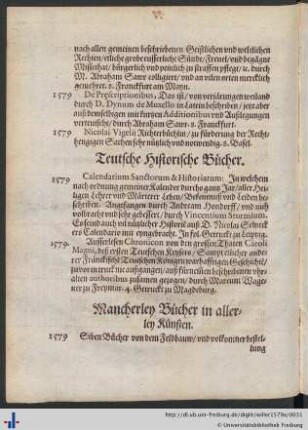 nach allen gemeinen beschriebenen Geistlichen vnd weltlichen
Rechten / etliche grobe eusserliche Sünde / Freuel / vnd begägne
Missethat / bürgerlich vnd peinlich zu straffen pflegt / ꝛc. durch
M. Abraham Sawr colligiert / vnd an vilen orten mercklich
gemehret. 8. Franckfurt am Mayn.
1579 De Præscriptionibus, Das ist / von verjärungen weiland
durch D. Dynum de Muxello in Latein beschriben / jetz aber
auß demselbigen mit kurtzen Additionibus vnd Außlegungen
verteutscht / durch Abraham Sawr. 8. Franckfurt.
1579 Nicolai Vigelij Richterbüchlin / zu fürderung der Recht-
hengigen Sachen sehr nützlich vnd notwendig. 8. Basel.
Teutsche Historische Bücher.
1579 Calendarium Sanctorum & Historiarum: In welchem
nach ordnung gemeiner Kalender durchs gantz Jar / aller Hei-
ligen Lehrer vnd Märterer Leben / Bekenntnuß vnd Leiden be-
schriben. Angefangen durch Andream Hondorff / vnd auffs
vollbracht vnd sehr gebessert / durch Vincentium Sturmium.
Es seind auch vil nützliche Historiẽ auß D. Nicolai Selnec-
cers Calendario mit eyngebracht. In fol. Getruckt zu Leipzig.
1579 Ausserlesen Chronicon von den grossen Thaten Caroli
Magni, deß ersten Teutschen Keysers / Sampt etlicher ander
erer Franckischẽ Teutschen Königen warhafftigen Geschicht /
zuvor in truck nie außgangen / auß fürnemen beschribenen vhr-
alten authoribus zusamen gezogen / durch Marcum Wage-
ner zu Freymar. 4. Getruckt zu Magdeburg.
Mancherley Bücher in aller-
ley Künsten.
1579 Siben Bücher von dem Feldbauw / vnd volkom̃ner bestel-
lung
http://dl.ub.uni-freiburg.de/diglit/willer1579a/0031
© Universitätsbibliothek Freiburg